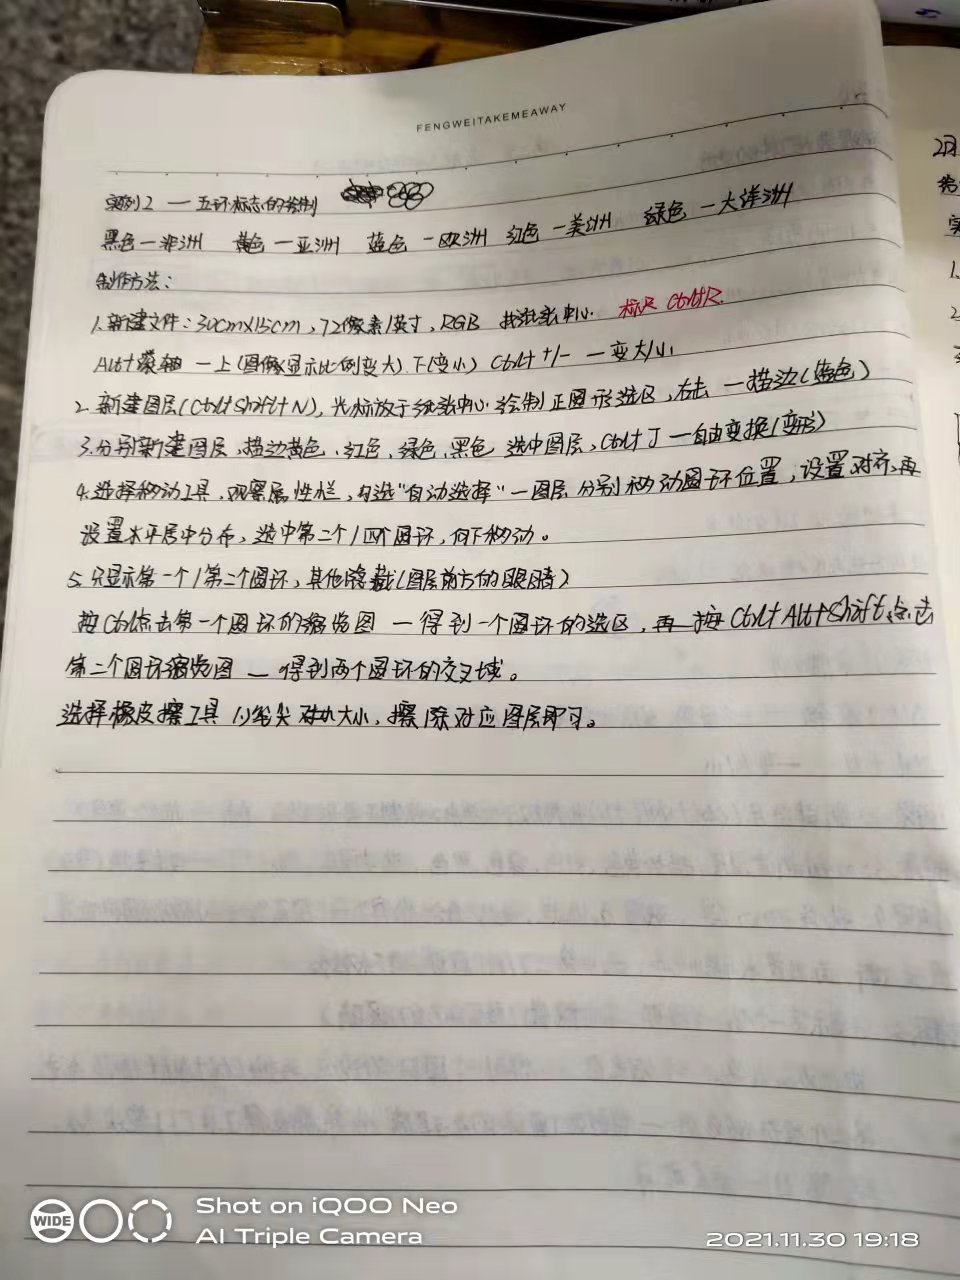 FENGWEITAKEMEAWAY
实例2 — 五环标志的绘制
黑色—非洲 黄色—亚洲 蓝色—欧洲 红色—美洲 绿色—大洋洲
制作方法:
1.新建文件:30cm×15cm,72像素/英寸,RGB 找纸张中心. 标尺 Ctrl+R.
Alt+滚轴 — 上(图像显示比例变大).下(变小) Ctrl+ +/- — 变大/小
2.新建图层(Ctrl+Shift+N),光标放于纸张中心.绘制正圆形选区,右击 —描边(蓝色)
3.分别新建图层,描边黄色、红色、绿色、黑色 选中图层,Ctrl+J —自由变换(变形)
4.选择移动工具,观察属性栏,勾选"自动选择"—图层 分别移动圆环位置,设置对齐,再
设置水平居中分布,选中第二个/四个圆环,向下移动。
5.只显示第一个/第二个圆环,其他隐藏(图层前方的眼睛)
按Ctrl点击第一个圆环的缩览图 —得到一个圆环的选区,再按Ctrl+Alt+Shift点击
第二个圆环缩览图 — 得到两个圆环的交叉域。
选择橡皮擦工具 大小,擦除对应图层即可。
2.
1.
2.
WIDE
Shot on iQOO Neo
AI Triple Camera
2021.11.30 19:18